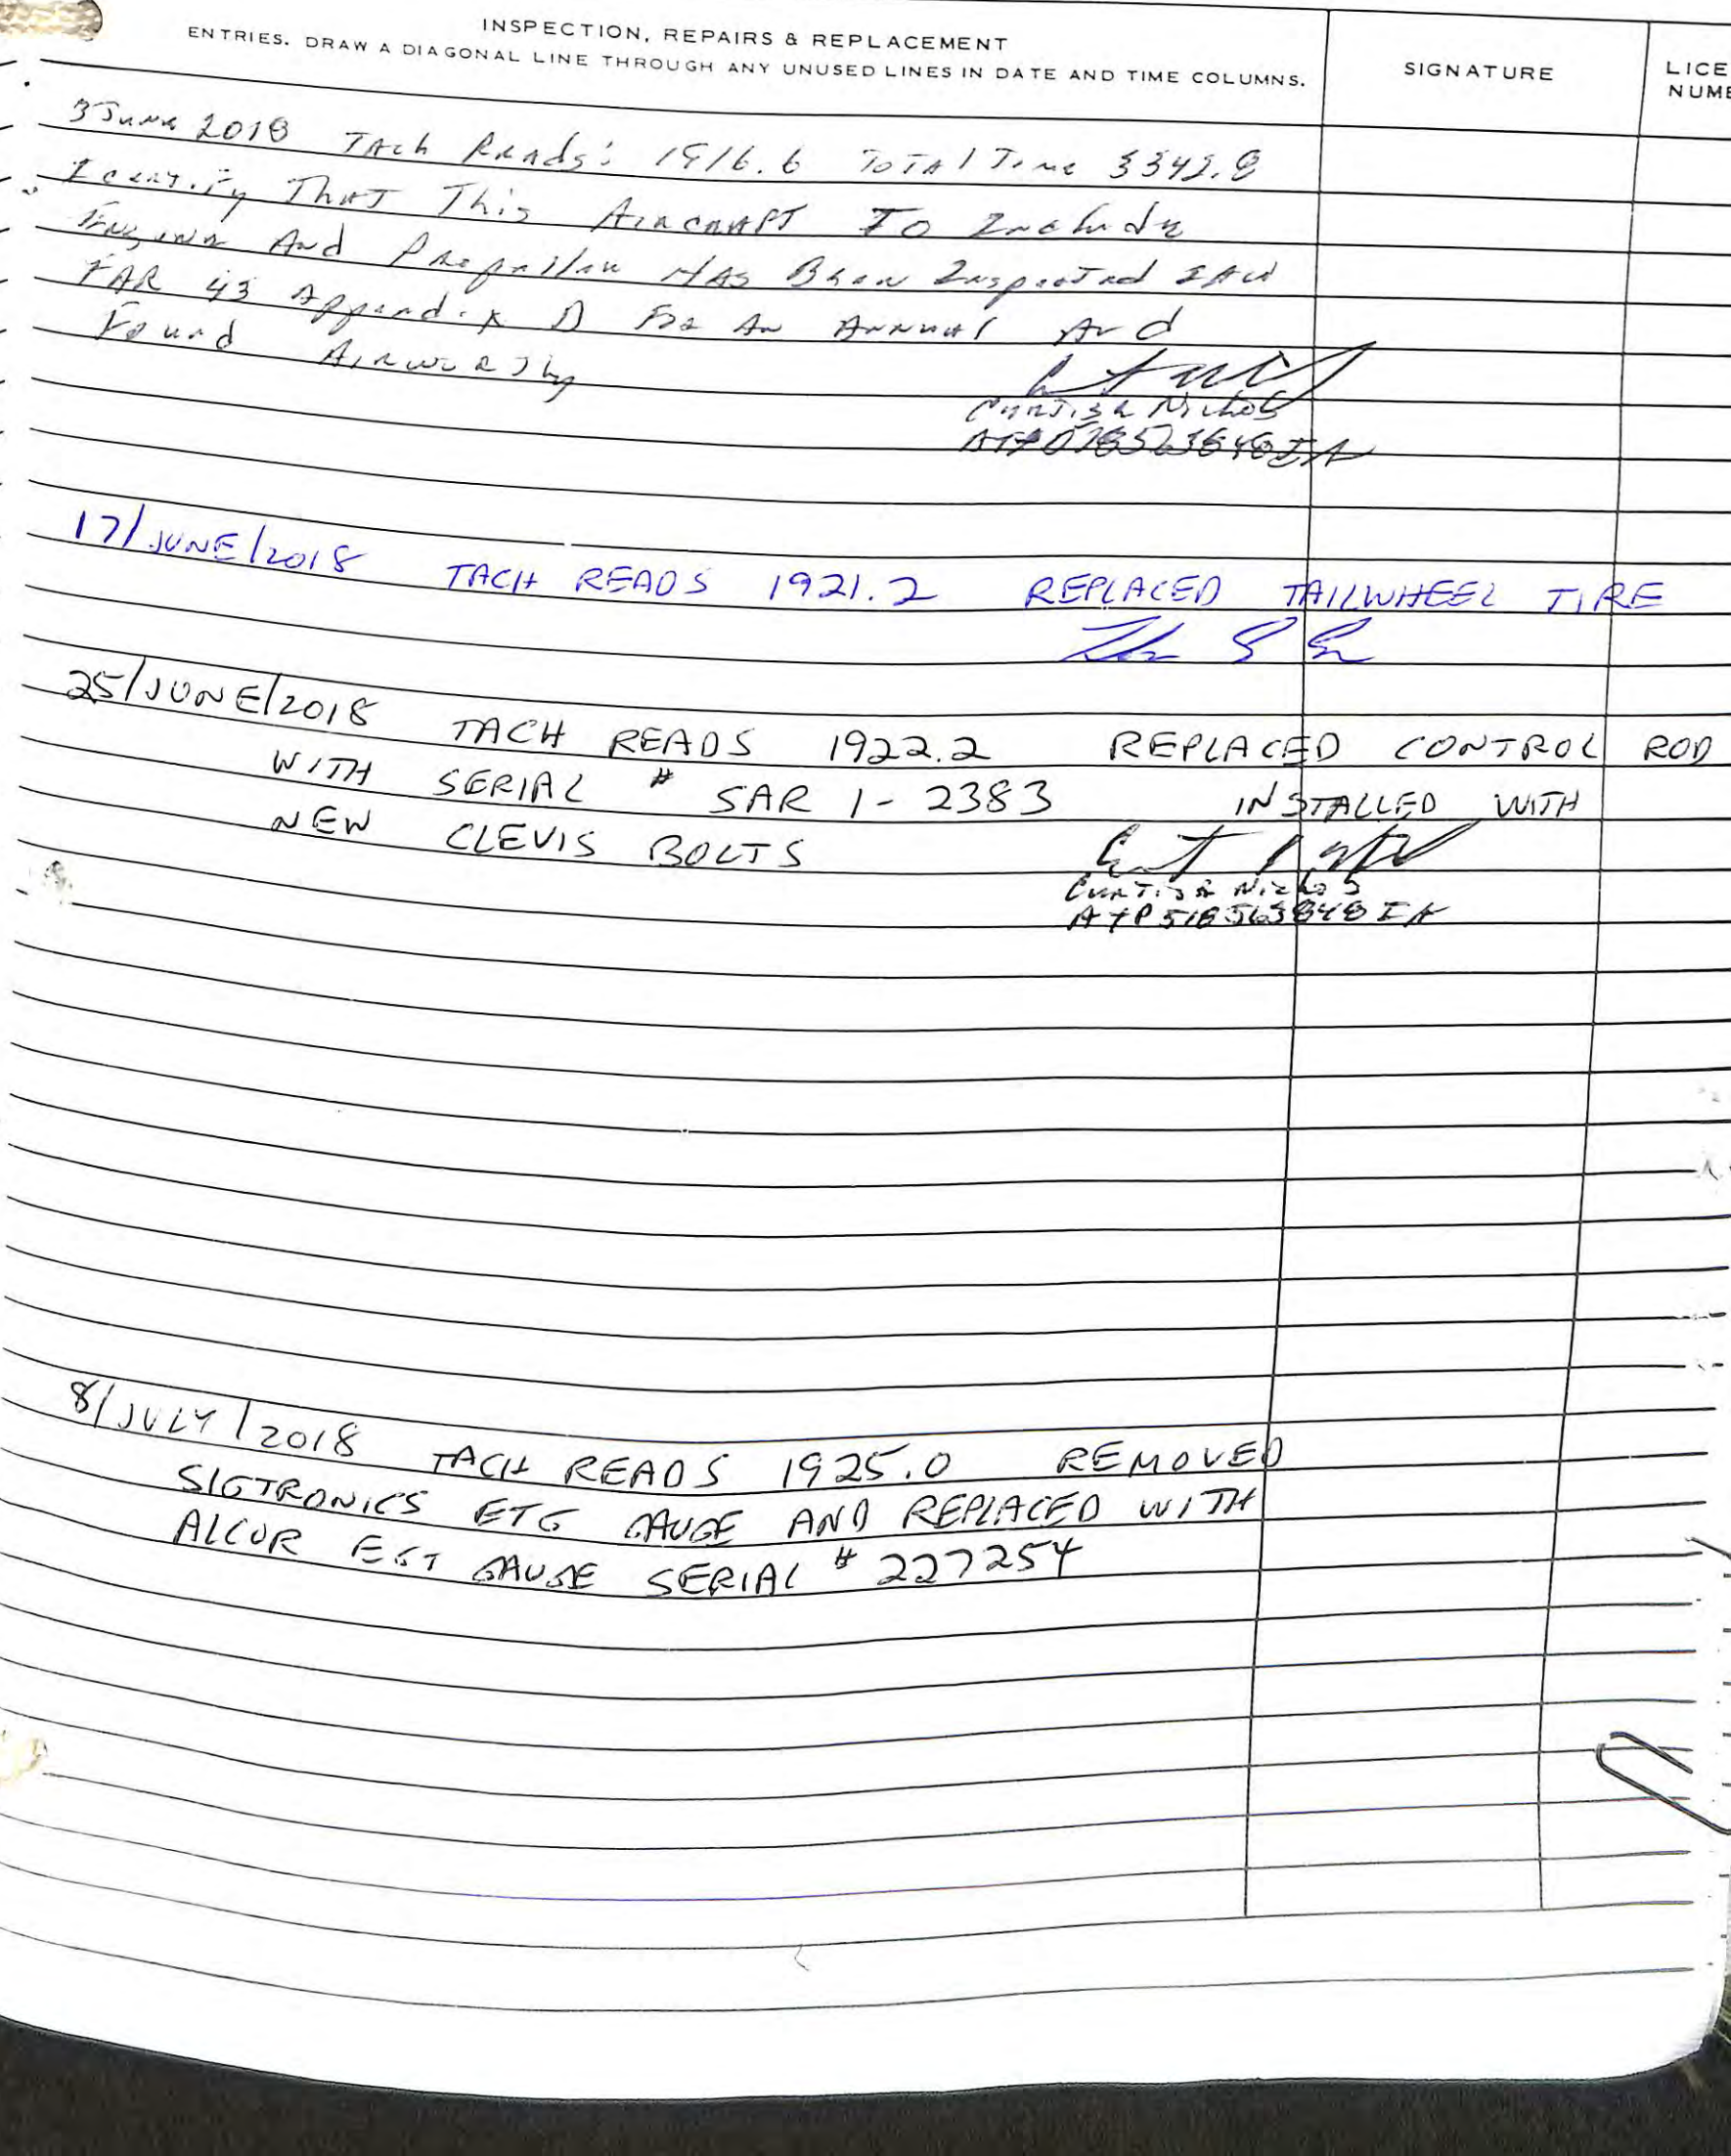 INSPECTION, REPAIRS & REPLACEMENT
ENTRIES. DRAW A DIAGONAL LINE THROUGH ANY UNUSED LINES IN DATE AND TIME COLUMNS.
SIGNATURE
LICE
NUME
3 June 2018 TAch Reads: 1916.6 ToTAl Time 3342.8
I certify ThaT This AircrAft To Include
Engine And Propeller HAs Been Inspected IAW
FAR 43 Appendix D For An AnnuAl And
Found Airworthy
Curtis R Nichols
17/JUNE/2018 TACH READS 1921.2 REPLACED TAILWHEEL TIRE
25/JUNE/2018 TACH READS 1922.2 REPLACED CONTROL ROD
WITH SERIAL # SAR 1-2383 INSTALLED WITH
NEW CLEVIS BOLTS
Curtis R Nichols
8/JULY/2018 TACH READS 1925.0 REMOVED
SIGTRONICS ETG GAUGE AND REPLACED WITH
ALCOR EGT GAUGE SERIAL # 227254